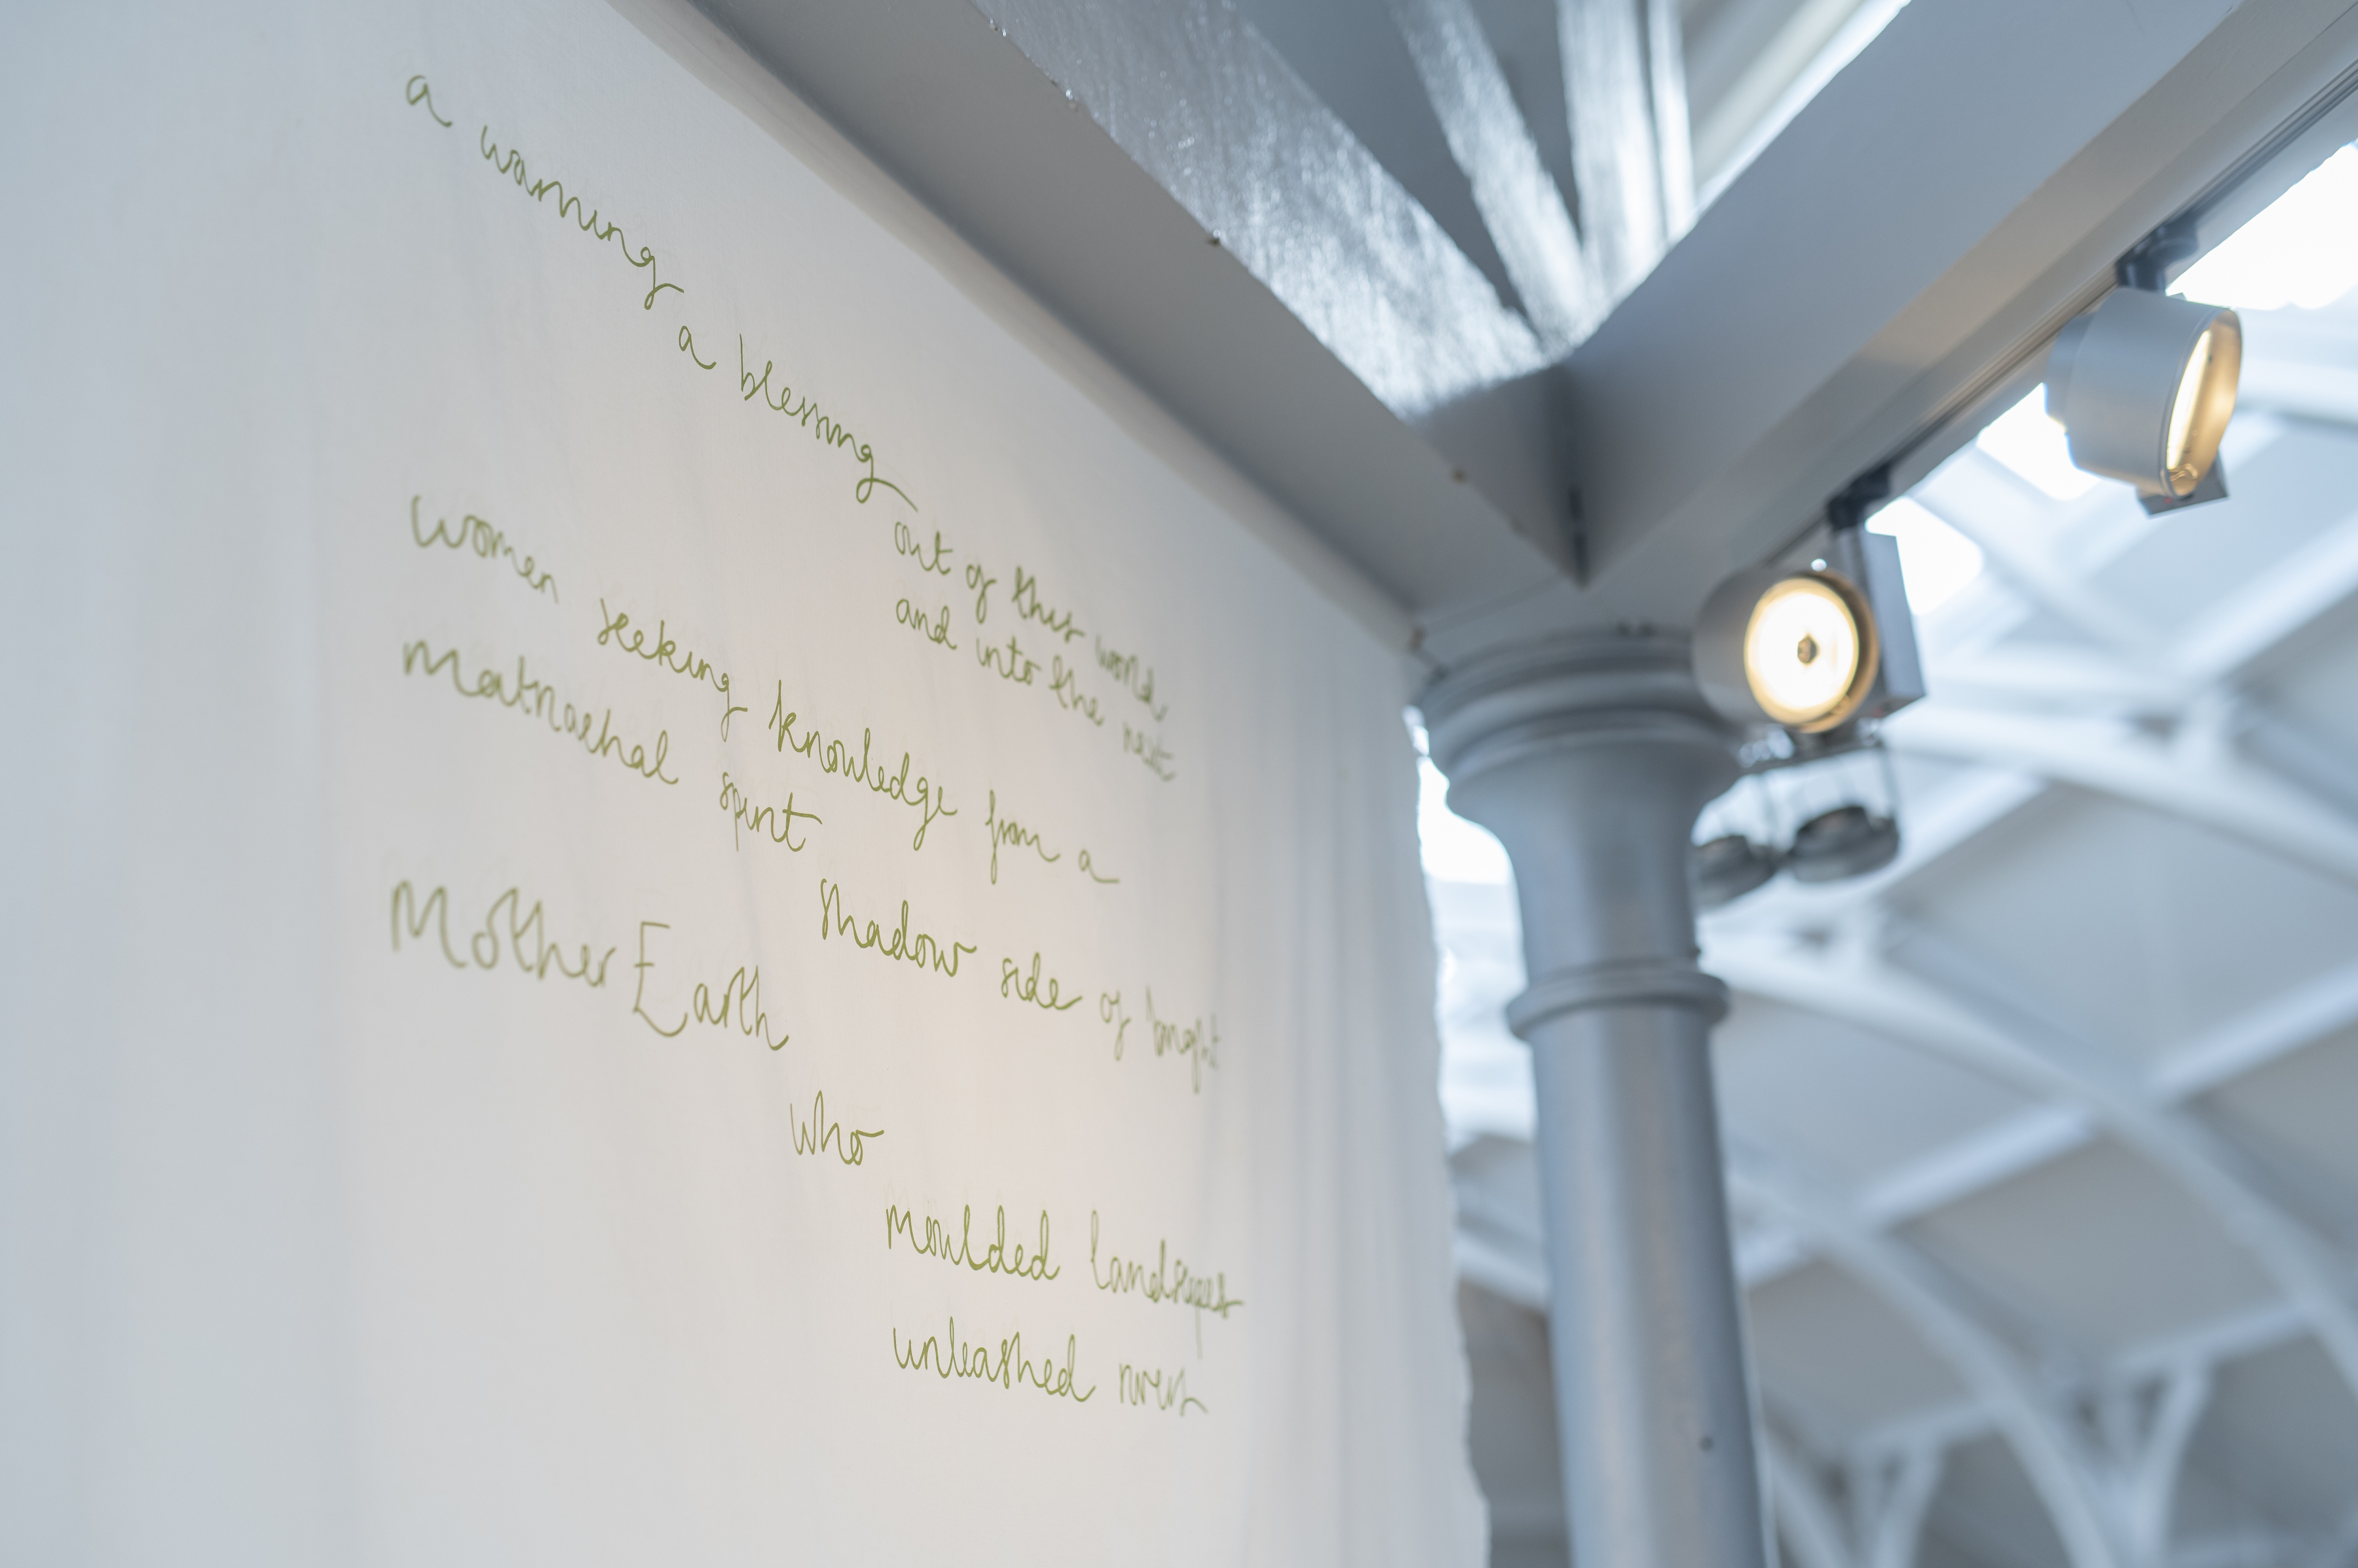 a warning
a blessing
out of this world
and into the next
women seeking knowledge from a
matriarchal spirit
shadow side of bright
Mother Earth
who
moulded landscapes
unleashed rivers